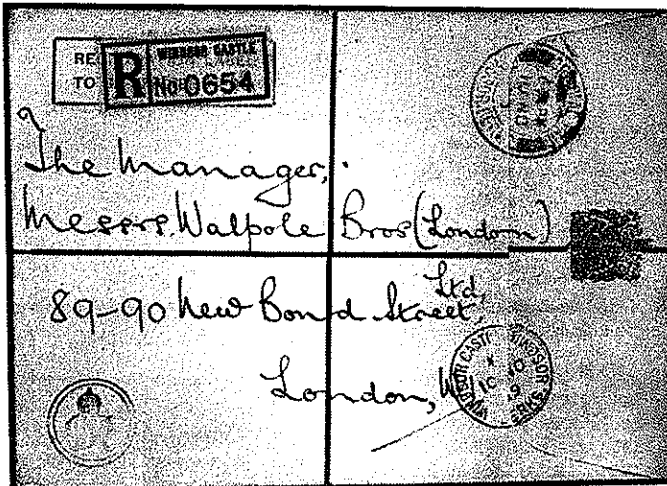 RE
TO
R
WINDSOR CASTLE
No 0654
The Manager,
Messrs. Walpole Bros (London)
Ltd,
89-90 New Bond Street,
London, W
WINDSOR CASTLE WINDSOR